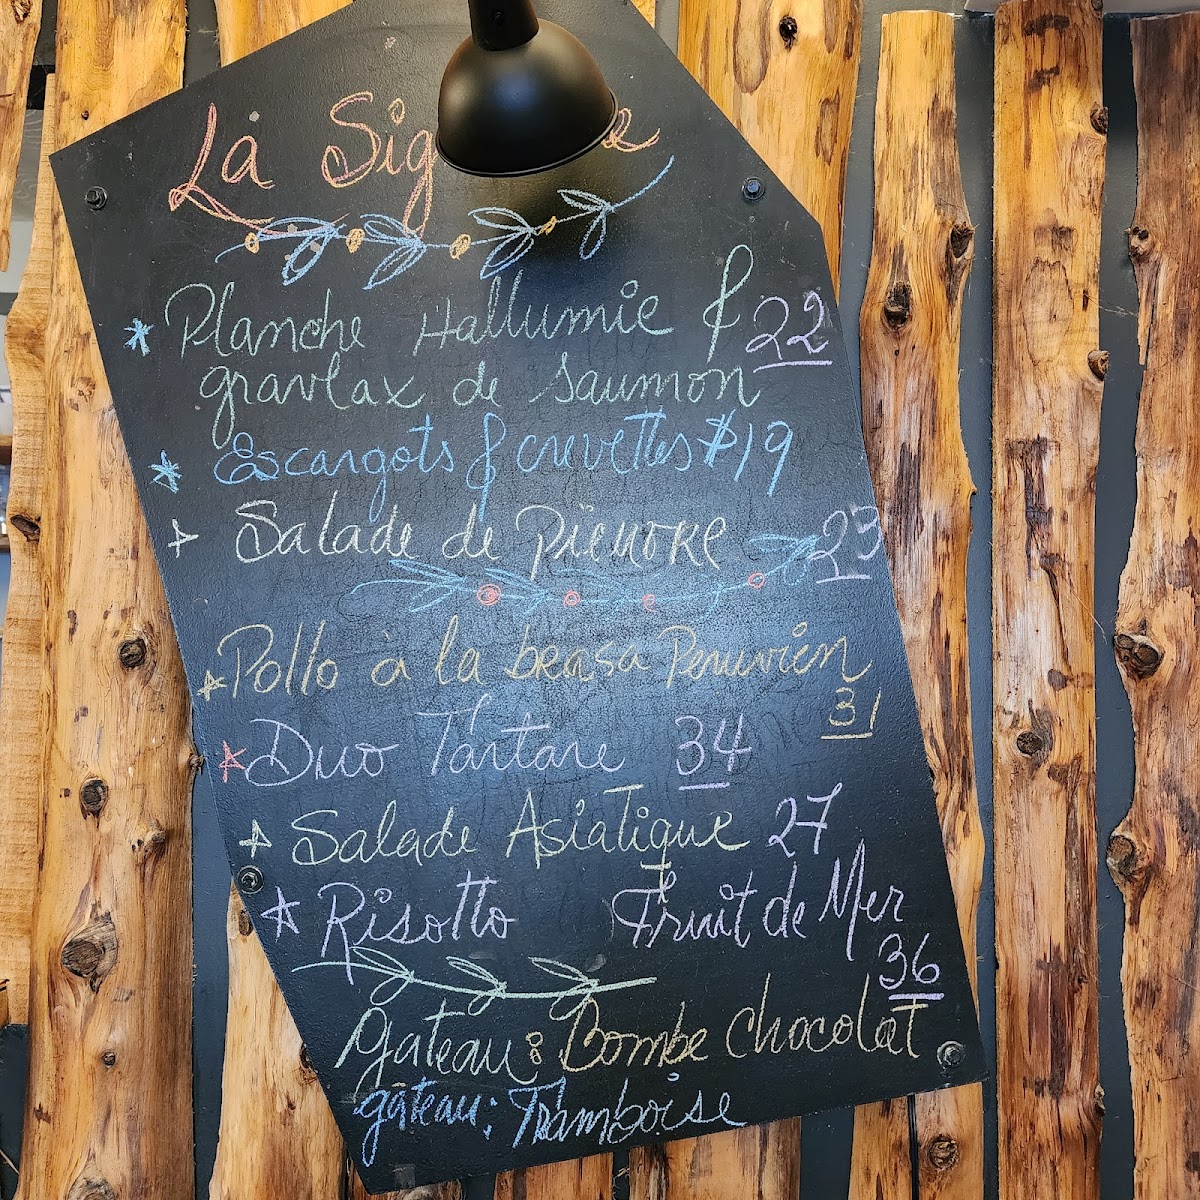 La
Planche Hallumie & 22
gravlax de saumon
Escargots & crevettes $19
Salade de pieuvre 23
Pollo à la brasa Peruvien
31
Duo Tartare 34
Salade Asiatique 27
Risotto Fruit de Mer
36
Gateau: Bombe Chocolat
gâteau: Framboise